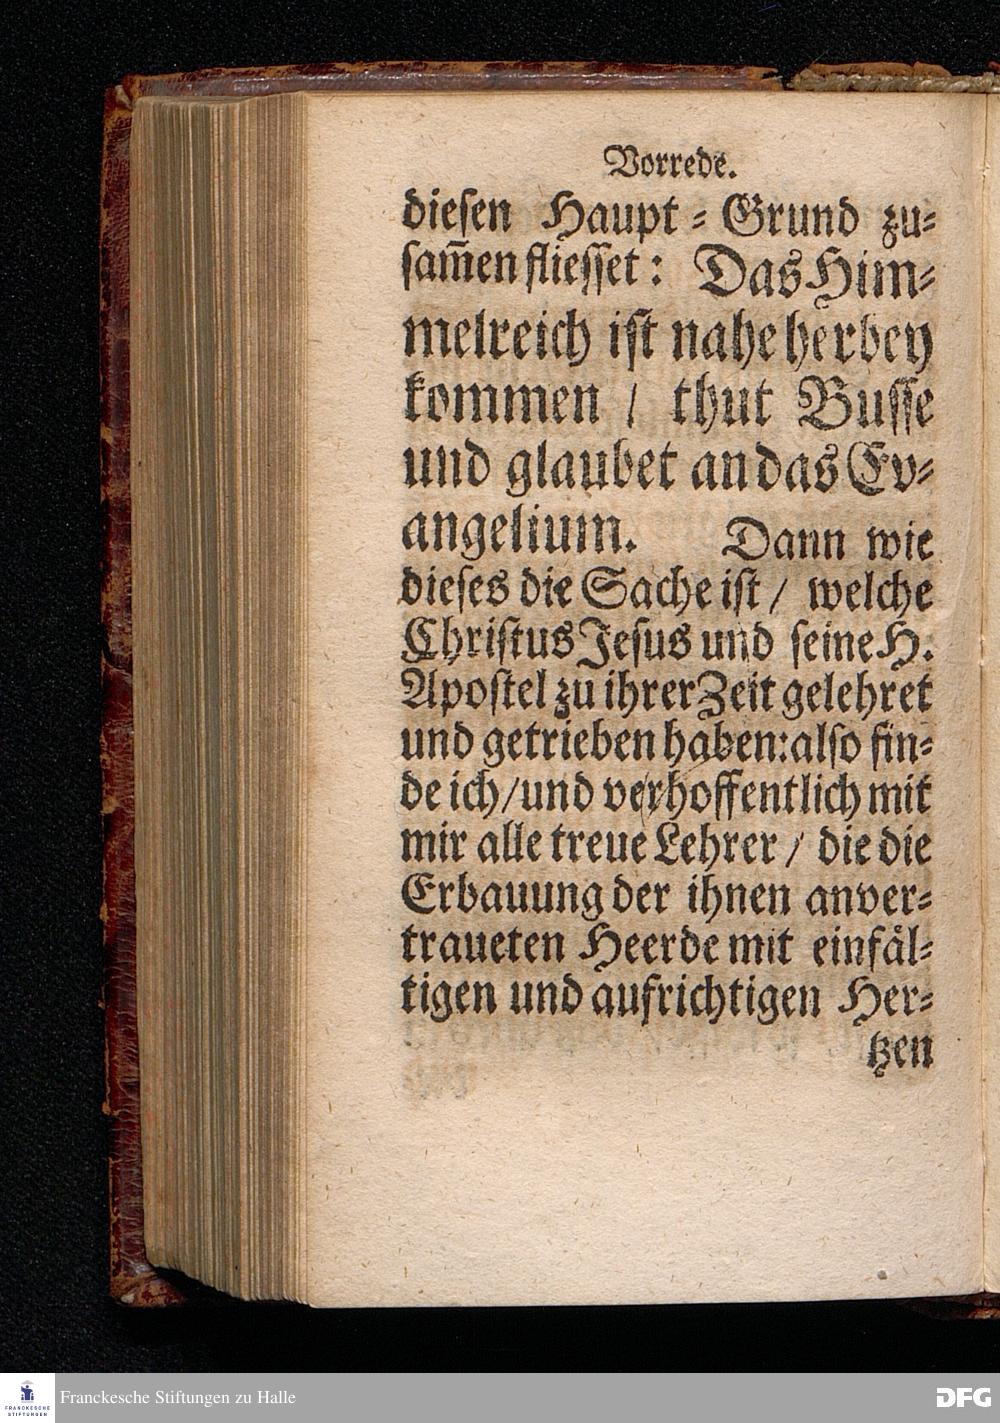 Vorrede.
dieſen Haupt⸗Grund zu⸗
ſam̅en flieſſet: Das Him⸗
melreich iſt nahe herbey
kommen / thut Buſſe
und glaubet an das Ev⸗
angelium. Dann wie
dieſes die Sache iſt / welche
Chriſtus Jeſus und ſeine H.
Apoſtel zu ihrer Zeit gelehret
und getrieben haben: alſo fin⸗
de ich / und verhoffentlich mit
mir alle treue Lehrer / die die
Erbauung der ihnen anver⸗
traueten Heerde mit einfäl⸗
tigen und aufrichtigen Her⸗
tzen
FRANCKESCHE
STIFTUNGEN
Franckesche Stiftungen zu Halle
DFG